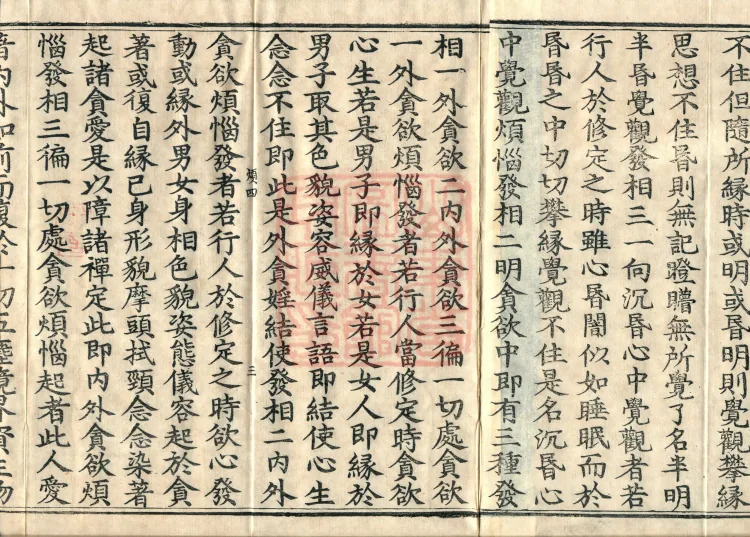 不住但隨所緣時或明或昬明則覺觀攀緣
思想不住昬則無記瞪瞢無所覺了名半明
半昬覺觀發相三一向沉昬心中覺觀者若
行人於修定之時雖心昬闇似如睡眠而於
昬昬之中切切攀緣覺觀不住是名沉昬心
中覺觀煩惱發相二明貪欲中即有三種發
相一外貪欲二內外貪欲三徧一切處貪欲
一外貪欲煩惱發者若行人當修定時貪欲
心生若是男子即緣於女若是女人即緣於
男子取其色貌姿容威儀言語即結使心生
念念不住即此是外貪婬結使發相二內外
煩四
三
貪欲煩惱發者若行人於修定之時欲心發
動或緣外男女身相色貌姿態儀容起於貪
著或復自緣己身形貌摩頭拭頸念念染著
起諸貪愛是以障諸禪定此即內外貪欲煩
惱發相三徧一切處貪欲煩惱起者此人愛
著內外如前而復於一切五塵境界資生物